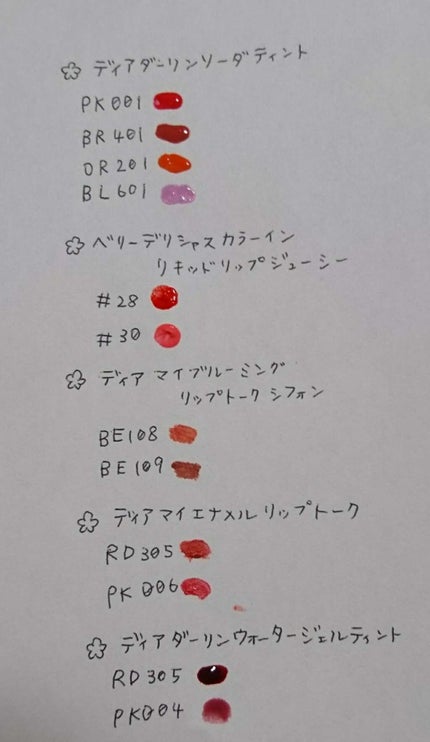 ディアダーリンソーダティント
PK001
BR401
OR201
BL601
ベリーデリシャスカラーイン
リキッドリップジューシー
#28
#30
ディア マイブルーミング
リップトーク シフォン
BE108
BE109
ディアマイエナメルリップトーク
RD305
PK006
ディアダーリンウォータージェルティント
RD305
PK004